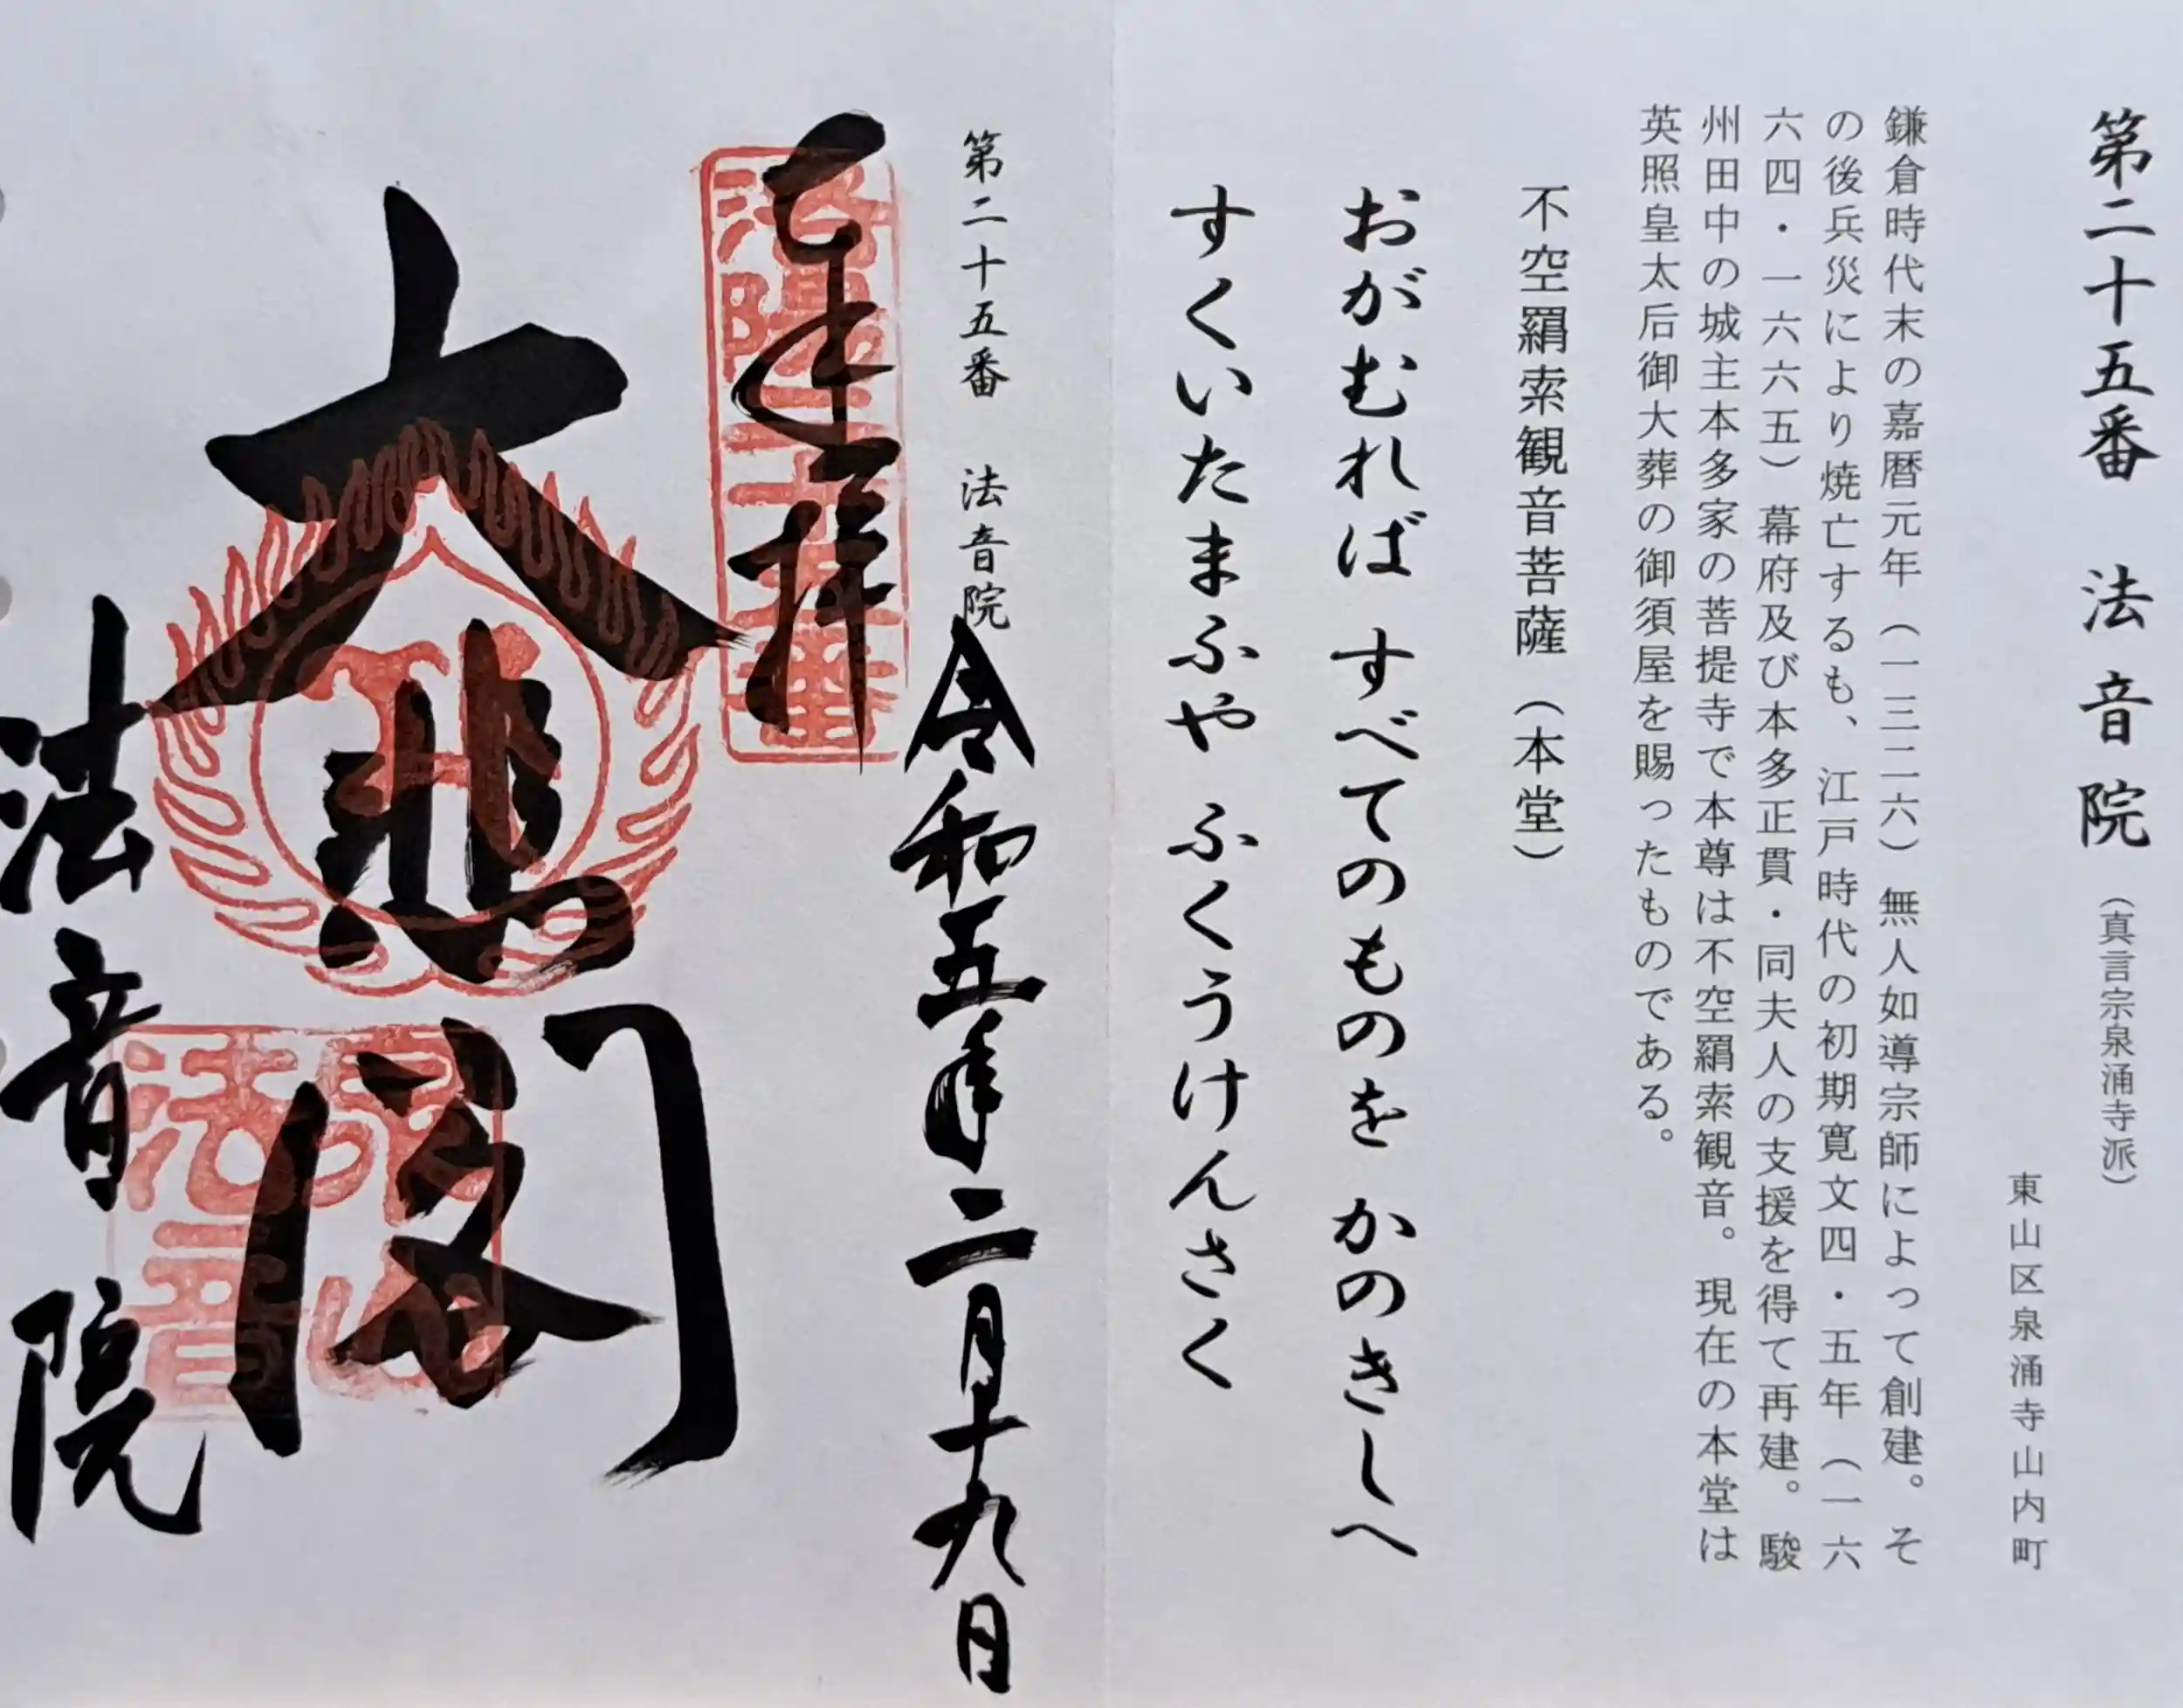 第二十五番 法音院（真言宗泉涌寺派）
東山区泉涌寺山内町
鎌倉時代末の嘉暦元年（一三二六）無人如導宗師によって創建。そ
の後兵災により焼亡するも、江戸時代の初期寛文四・五年（一六
六四・一六六五）幕府及び本多正貫・同夫人の支援を得て再建。駿
州田中の城主本多家の菩提寺で本尊は不空羂索観音。現在の本堂は
英照皇太后御大葬の御須屋を賜ったものである。
不空羂索観音菩薩（本堂）
おがむれば すべてのものを かのきしへ
すくいたまふや ふくうけんさく
第二十五番 法音院
令和五年二月十九日
奉拝
洛陽二十五番
大悲閣
泉山法音
法音院